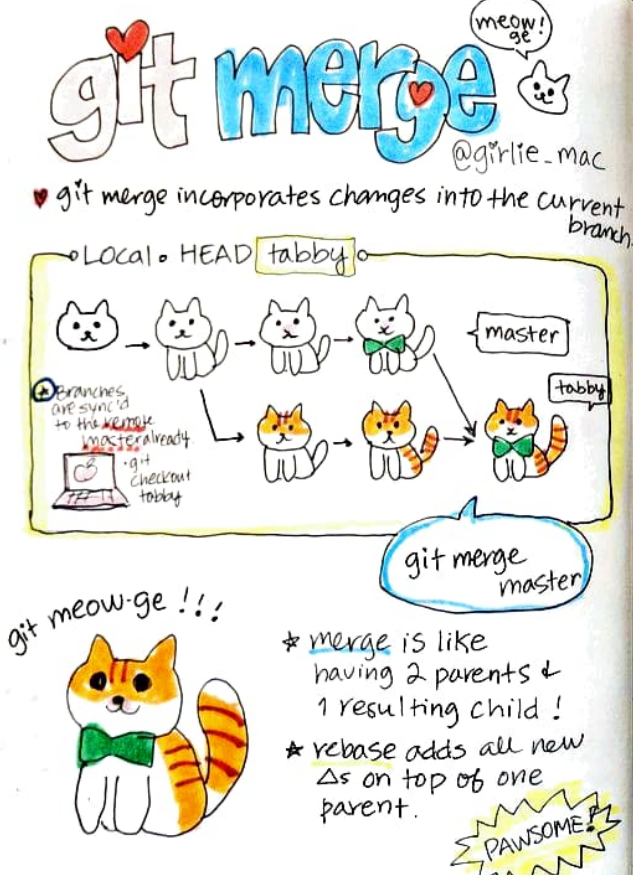 meow!
ge
git merge
@girlie_mac
git merge incorporates changes into the current
branch.
Local • HEAD tabby
master
tabby
Branches
are sync'd
to the remote
master already
• git
checkout
tabby
git merge
master
git meow-ge !!!
★ merge is like
having 2 parents &
1 resulting child !
★ rebase adds all new
Δs on top of one
parent.
PAWSOME!